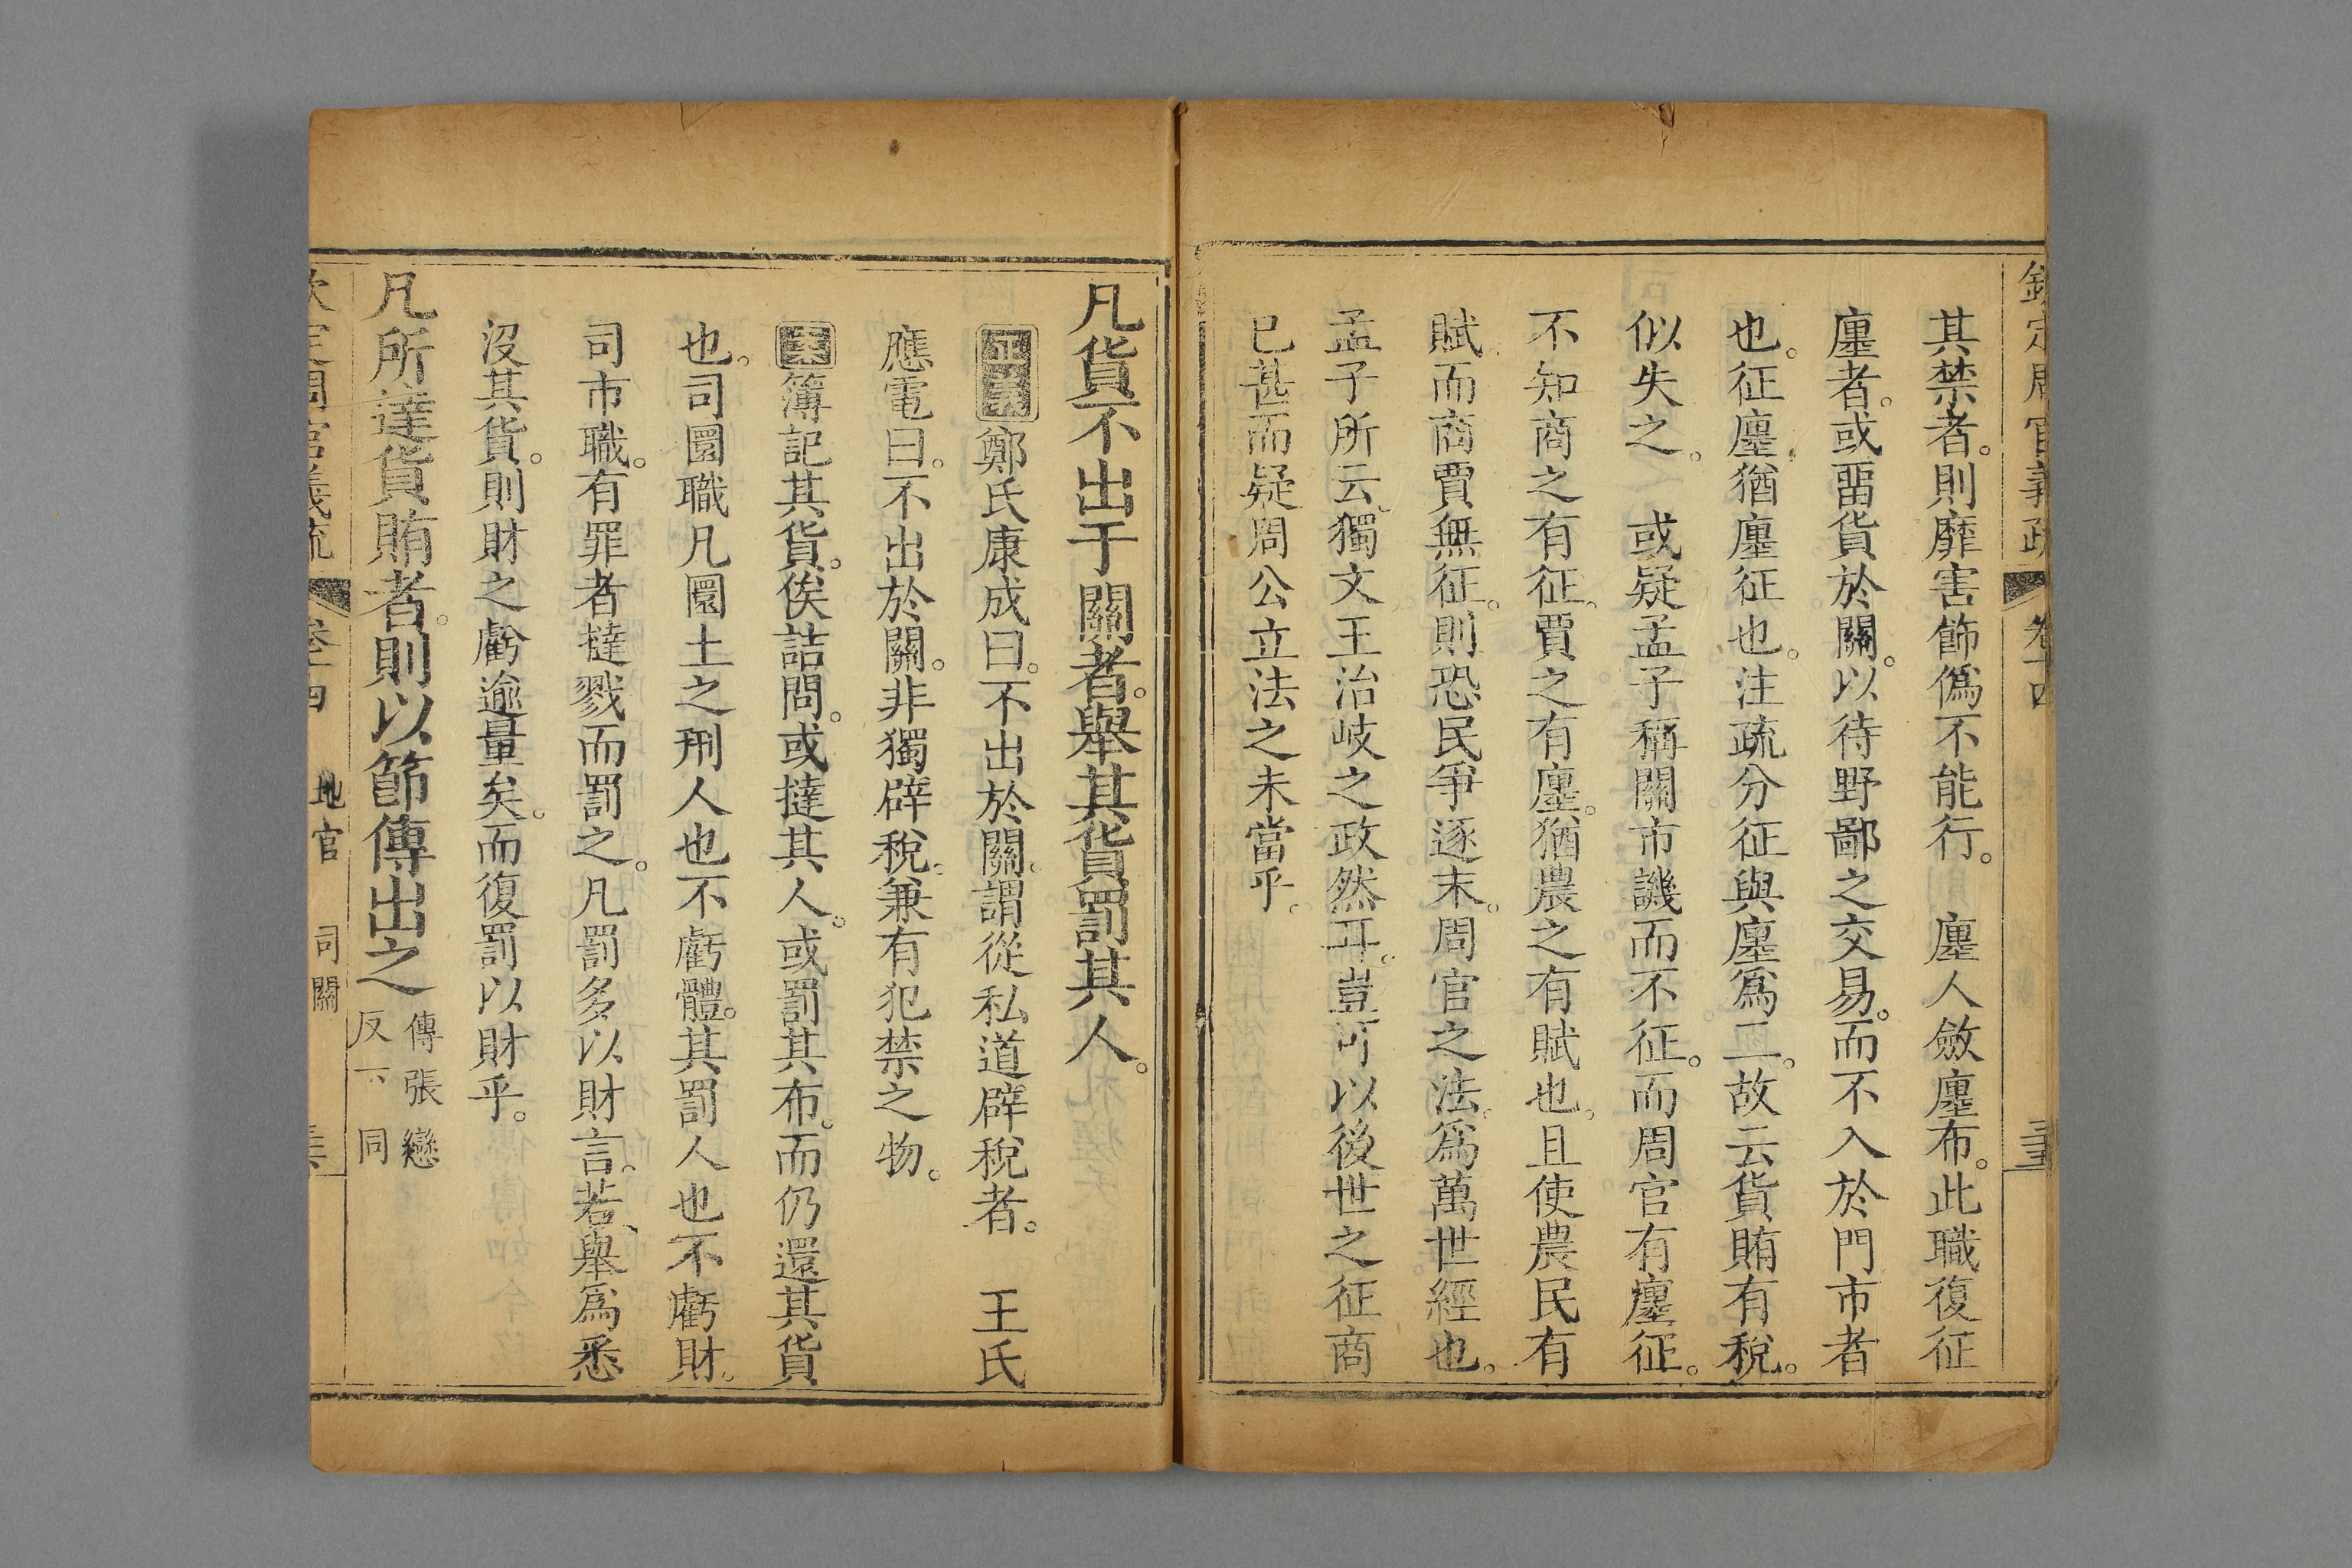 欽定周官義疏 卷十四
其禁者。則靡害飾僞不能行。 廛人斂廛布。此職復征
廛者。或畱貨於關。以待野鄙之交易。而不入於門市者
也。征廛猶廛征也。注疏分征與廛爲二。故云貨賄有稅。
似失之。 或疑孟子稱關市譏而不征。而周官有廛征。
不知商之有征。賈之有廛。猶農之有賦也。且使農民有
賦而商賈無征。則恐民爭逐末。周官之法。爲萬世經也。
孟子所云、獨文王治岐之政然耳。豈可以後世之征商
已甚而疑周公立法之未當乎。
凡貨不出于關者。舉其貨罰其人。
正義鄭氏康成曰。不出於關。謂從私道辟稅者。 王氏
應電曰。不出於關。非獨辟稅。兼有犯禁之物。
案簿記其貨。俟詰問。或撻其人。或罰其布。而仍還其貨
也。司圜職凡圜土之刑人也不虧體。其罰人也不虧財。
司市職。有罪者撻戮而罰之。凡罰多以財言。若、舉爲悉
沒其貨。則財之虧逾量矣。而復罰以財乎。
凡所達貨賄者。則以節傳出之 傳張戀
反下同
欽定周官義疏 卷十四 地官 司關